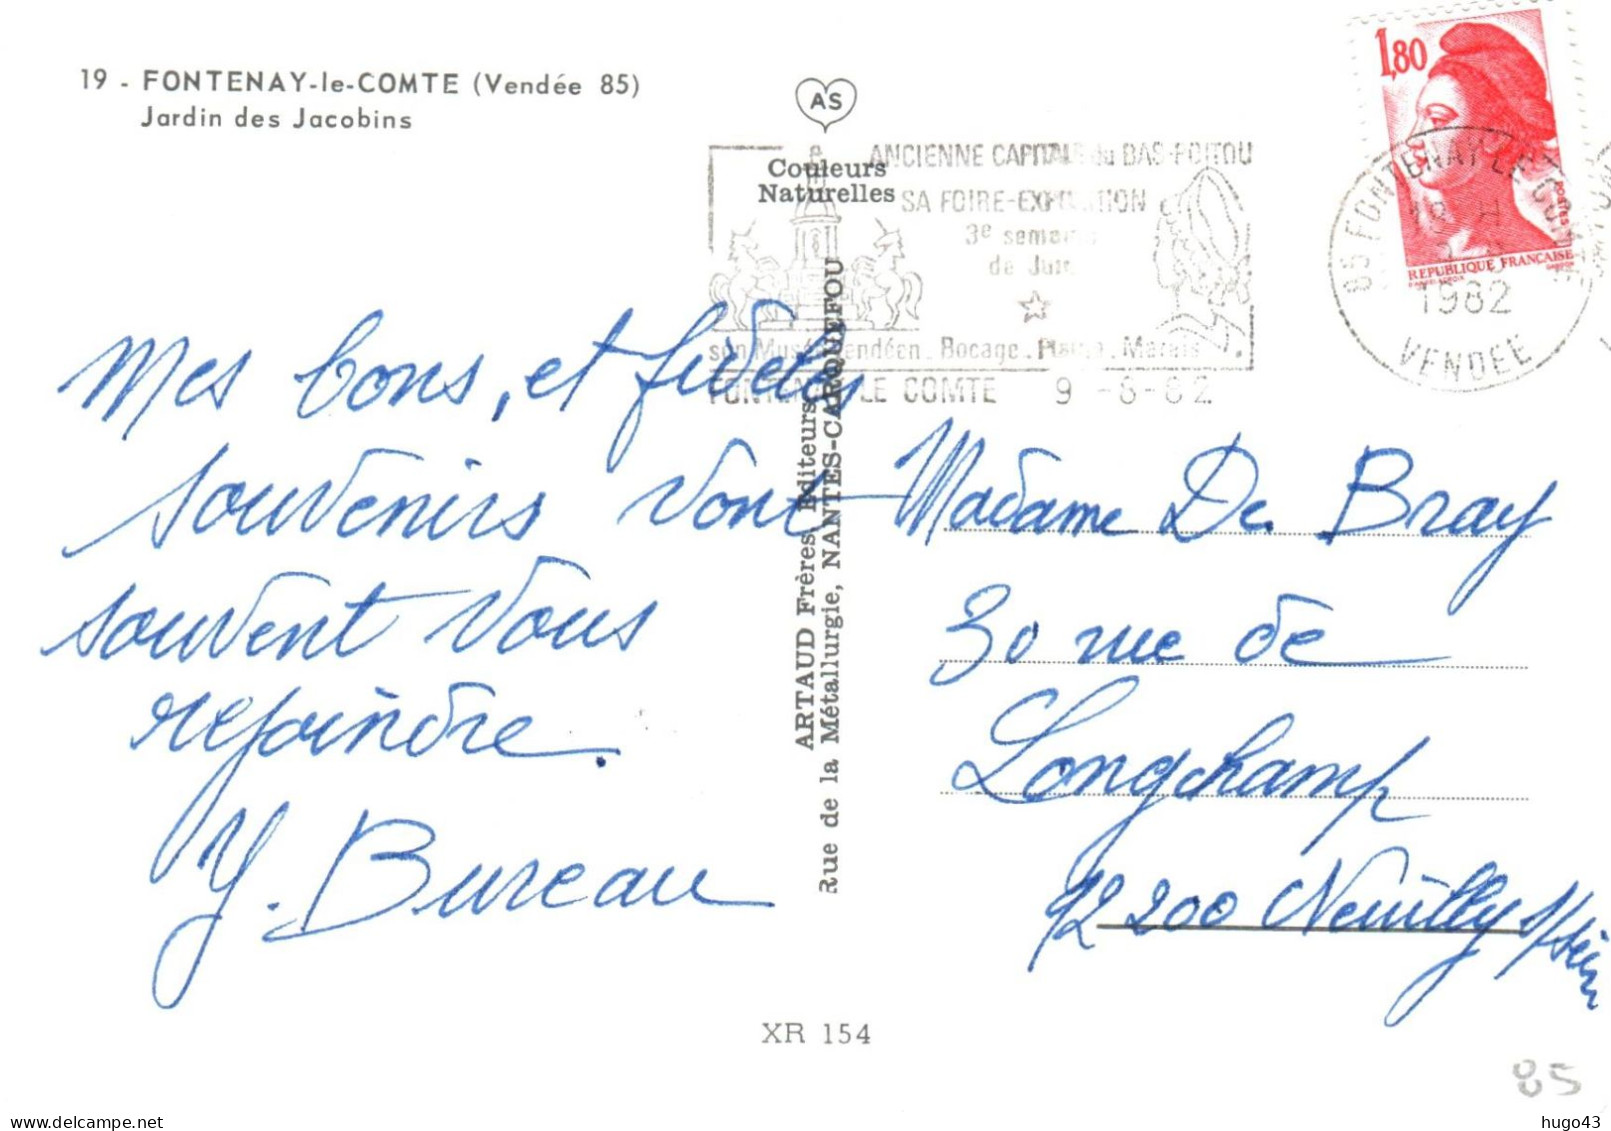 19 - FONTENAY-le-COMTE (Vendée 85)
Jardin des Jacobins
AS
Couleurs
Naturelles
1,80
POSTES
REPUBLIQUE FRANÇAISE
ANCIENNE CAPITALE du BAS-POITOU
SA FOIRE-EXPOSITION
3e semaine
de Juin
son Musée vendéen. Bocage. Plaine. Marais
FONTENAY LE COMTE 9 -8-82
85 FONTENAY LE COMTE
18 H
1982
VENDEE
Mes bons, et fidèles
souvenirs vont
souvent vous
rejoindre.
Y. Bureau
ARTAUD Frères Editeurs
Rue de la Métallurgie, NANTES-CARQUEFOU
Madame De Bray
30 rue de
Longchamp
92200 Neuilly s/Seine
XR 154
85
hugo43